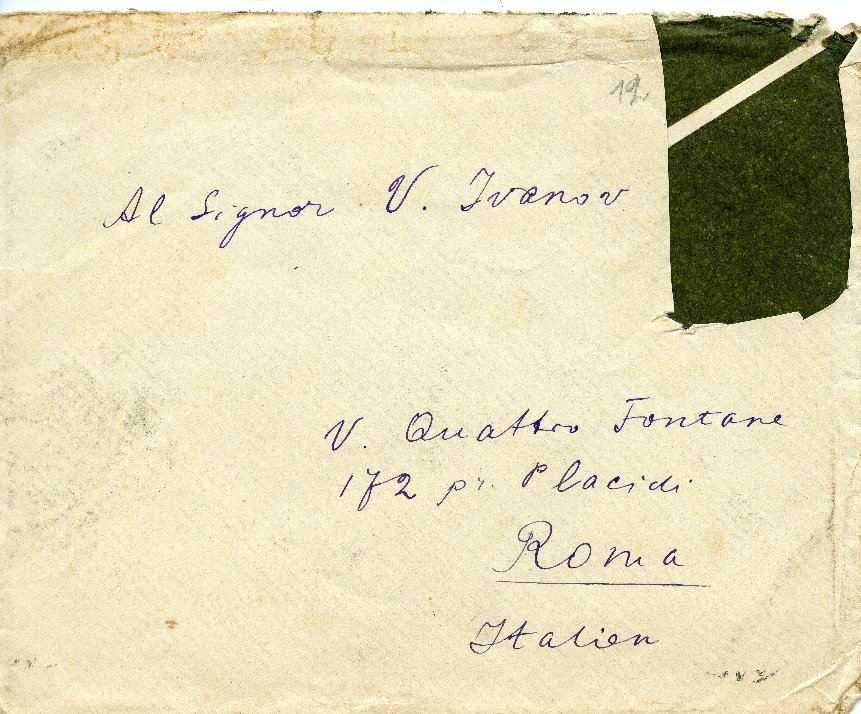 19.
Al Signor V. Ivanov
V. Quattro Fontane
172 pr. Placidi
Roma
Italien